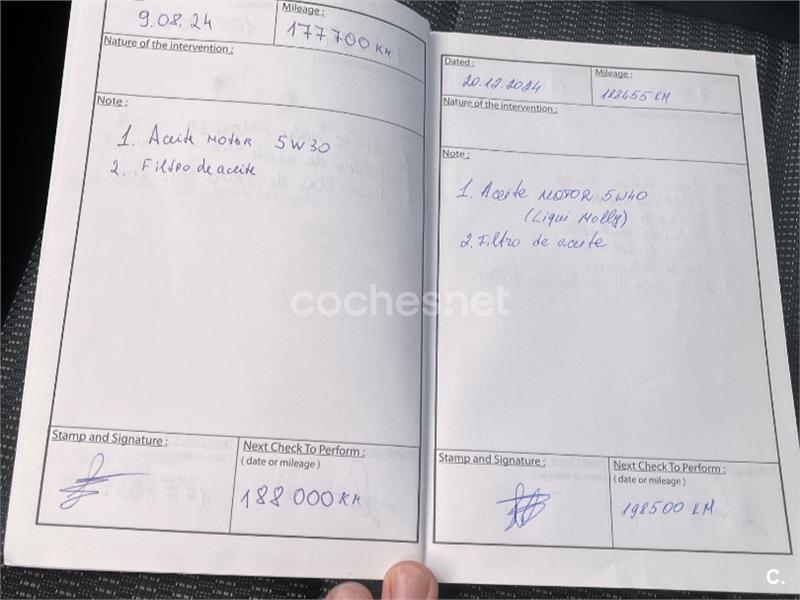 9.08.24
Mileage :
177,700 KM
Nature of the intervention :
Note :
1. Aceite MOTOR 5W30
2. Filtro de aceite
Stamp and Signature :
Next Check To Perform :
( date or mileage )
188 000 KM
Dated :
20.12.2024
Mileage :
183455 KM
Nature of the intervention :
Note :
1. Aceite MOTOR 5W40
(Liqui Molly)
2. Filtro de aceite
Stamp and Signature :
Next Check To Perform :
( date or mileage )
198500 KM
coches.net
C.